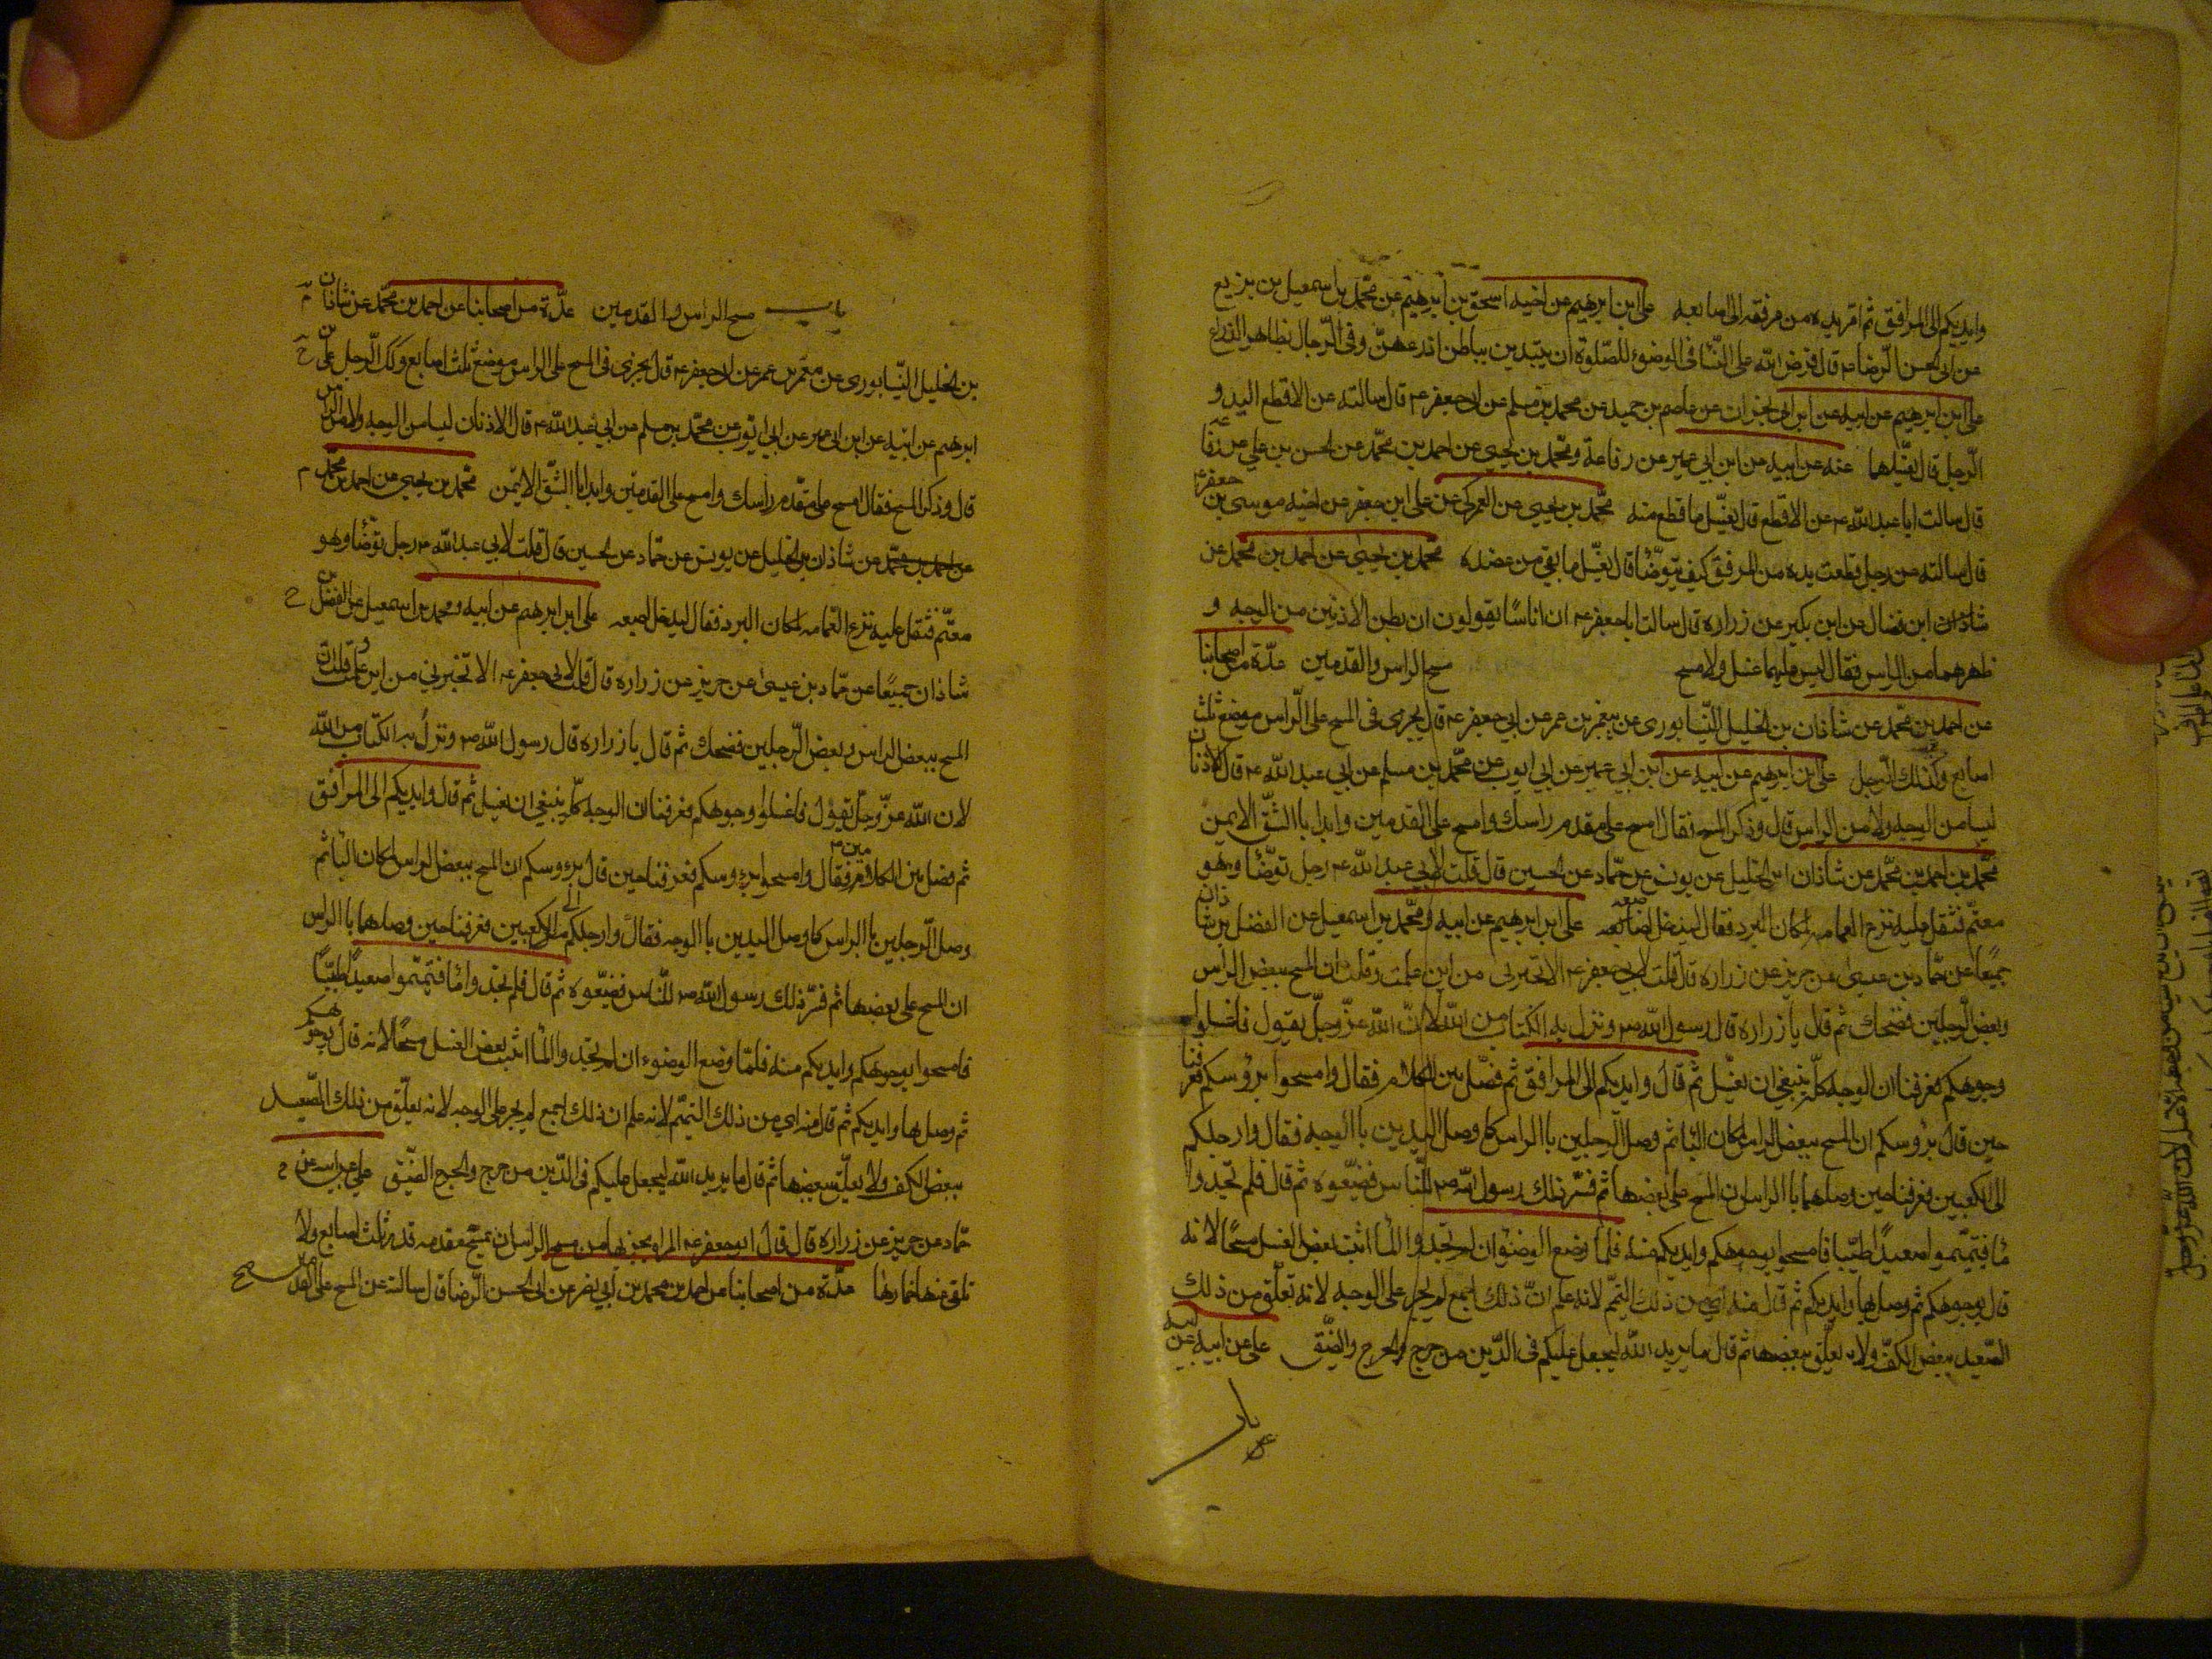 وايديكم الى المرافق ثم امّر يده من مرفقه الى اصابعه على ابن ابرهيم عن اخيه اسحق بن ابرهيم عن محمّد بن اسمعيل بن بزيع
عن ابى الحسن الرّضا ع قال فرض الله على النّساء فى الوضوء للصّلوة ان يبتدين بباطن اذرعهنّ وفى الرّجال بظاهر الذراع
على ابن ابرهيم عن ابيه عن ابن ابى نجران عن عاصم بن حميد عن محمد بن مسلم عن ابى جعفر ع قال سالته عن الاقطع اليد و
الرّجل قال يغسّلهما عنه عن ابيه عن ابن ابي عمير عن رفاعة ومحمّد بن يحيى عن احمد بن محمّد عن الحسن بن علي عن رفاعه
قال سالت ابا عبد الله ع عن الاقطع قال يغسّل ما قطع منه محمّد بن يحيى عن العمركي عن على ابن جعفر عن اخيه موسى بن جعفر ع
قال سالته عن رجل قطعت يده من المرفق كيف يتوضّا قال يغسّل ما بقى من عضده محمد بن يحيى عن احمد بن محمد عن
شاذان ابن فضال عن ابن بكير عن زراره قال سالت ابا جعفر ع ان اناسًا يقولون ان بطن الاذنين من الوجه و
ظهرهما من الراس فقال ليس عليهما غسل ولا مسح مسح الراس والقدمين عدّة من اصحابنا
عن احمد بن محمّد عن شاذان بن الخليل النّيسابورى عن معمر بن عمر عن ابي جعفر ع قال يجزى فى المسح على الرّاس موضع ثلث
اصابع وكذلك الرّجل على ابن ابرهيم عن ابيه عن ابن ابي عمير عن ابي ايوب عن محمّد بن مسلم عن ابي عبد الله ع قال الاذنان
ليسا من الوجه ولا من الراس قال وذكر المسح فقال امسح على مقدم راسك وامسح على القدمين وابدا بالشّق الايمن
محمّد بن احمد بن محمّد عن شاذان ابن الخليل عن يونس عن حمّاد عن الحسين قال قلت لابي عبد الله ع رجل توضّا وهو
معتمّ فثقل عليه نزع العمامه لمكان البرد فقال ليدخل اصابعه على ابن ابرهيم عن ابيه ومحمّد بن اسمعيل عن الفضل بن شاذان
جميعًا عن حمّاد بن عيسى عن حريز عن زراره قال قلت لابي جعفر ع الا تخبرنى من اين علمت وقلت ان المسح ببعض الراس
وبعض الرجلين فضحك ثم قال يا زراره قال رسول الله ص ونزل به الكتاب من الله لانّ الله عزّ وجلّ يقول فاغسلوا
وجوهكم فعرفنا ان الوجه كلّه ينبغى ان يغسّل ثم قال وايديكم الى المرافق ثم فصّل بين الكلام فقال وامسحوا برؤسكم فعرفنا
حين قال برؤسكم ان المسح ببعض الراس لمكان الباء ثم وصل الرجلين بالراس كما وصل اليدين بالوجه فقال وارجلكم
الى الكعبين فعرفنا حين وصلهما بالراس ان المسح على بعضها ثم فسّر ذلك رسول الله ص للنّاس فضيّعوه ثم قال فلم تجدوا
مأ فتيمّموا صعيدًا طيّبا فامسحوا بوجوهكم وايديكم منه فلمّا وضع الوضوء ان لم تجدوا المأ اثبت بعض الغسل مسحًا لانه
قال بوجوهكم ثم وصل بها وايديكم ثم قال منه اى من ذلك التيمّم لانه علم انّ ذلك اجمع لم يجر على الوجه لانه تعلّق من ذلك
الصّعيد ببعض الكفّ ولا يعلّق ببعضها ثم قال ما يريد الله ليجعل عليكم فى الدّين من حرج والحرج والضّيق على عن ابيه عن
باب مسح الراس والقدمين عدّة من اصحابنا عن احمد بن محمّد عن شاذان
بن الخليل النّيسابورى عن معمّر بن عمر عن ابى جعفر ع قال يجزى فى المسح على الراس موضع ثلث اصابع وكذلك الرّجل على بن
ابرهيم عن ابيه عن ابن ابى عمير عن ابى ايوب عن محمّد بن مسلم عن ابي عبد الله ع قال الاذنان ليسا من الوجه ولا من الراس
قال وذكر المسح فقال امسح على مقدّم راسك وامسح على القدمين وابدا بالشّقّ الايمن محمّد بن يحيى عن احمد بن محمّد
عن احمد بن محمّد عن شاذان بن الخليل عن يونس عن حمّاد عن الحسين قال قلت لابي عبد الله ع رجل توضّا وهو
معتمّ فثقل عليه نزع العمامه لمكان البرد فقال ليدخل اصبعه على ابن ابرهيم عن ابيه ومحمد بن اسمعيل عن الفضل بن
شاذان جميعًا عن حمّاد بن عيسى عن حريز عن زراره قال قلت لابى جعفر ع الا تخبرني من اين علمت وقلت ان
المسح ببعض الراس وبعض الرّجلين فضحك ثم قال يا زراره قال رسول الله ص ونزل به الكتاب من الله
لان الله عزّ وجلّ يقول فاغسلوا وجوهكم فعرفنا ان الوجه كلّه ينبغى ان يغسل ثم قال وايديكم الى المرافق
ثم فصل بين الكلام فقال وامسحوا برءوسكم فعرفنا حين قال برءوسكم ان المسح ببعض الراس لمكان الباء ثم
وصل الرّجلين بالراس كما وصل اليدين بالوجه فقال وارجلكم الى الكعبين فعرفنا حين وصلهما بالراس
ان المسح على بعضها ثم فسّر ذلك رسول الله ص للنّاس فضيّعوه ثم قال فلم تجدوا مأ فتيمّموا صعيدًا طيّبًا
فامسحوا بوجوهكم وايديكم منه فلمّا وضع الوضوء ان لم تجدوا المأ اثبت بعض الغسل مسحًا لانه قال بوجوهكم
ثم وصل بها وايديكم ثم قال منه اى من ذلك التيمّم لانه علم ان ذلك اجمع لم يجر على الوجه لانه يعلّق من ذلك الصّعيد
ببعض الكف ولا يعلّق ببعضها ثم قال ما يريد الله ليجعل عليكم فى الدّين من حرج والحرج الضّيق على عن ابيه عن
حماد عن حريز عن زراره قال قال ابو جعفر ع المراة يجزيها من مسح الراس ان تمسح مقدمه قدر ثلث اصابع ولا
تلقى عنها خمارها عدّة من اصحابنا عن احمد بن محمد بن ابي نصر عن ابى الحسن الرّضا قال سالته عن المسح على القدمين